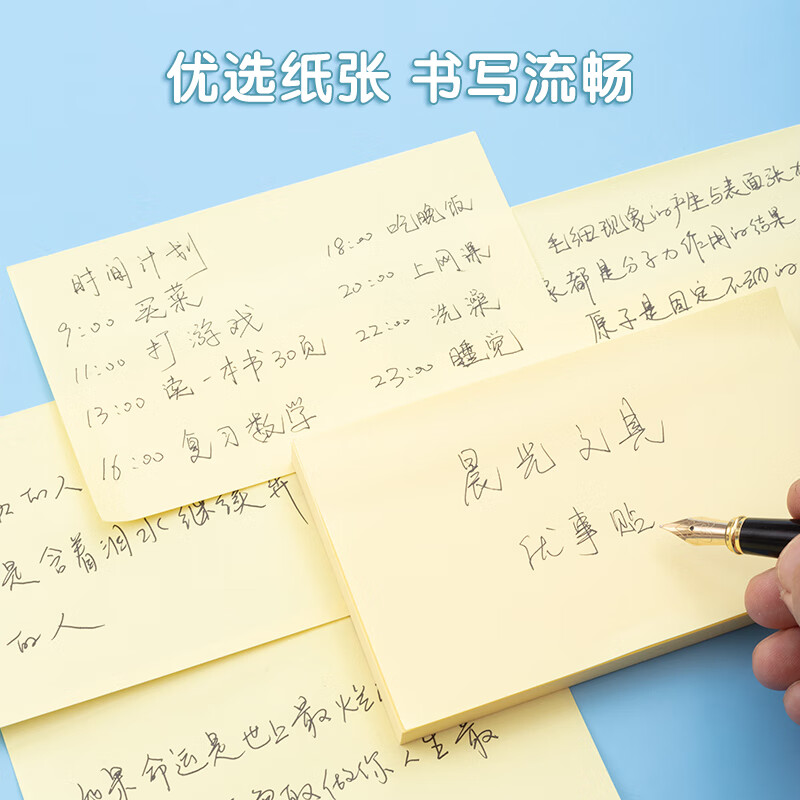 优选纸张 书写流畅
时间计划
9:00 买菜
11:00 打游戏
13:00 读一本书30页
16:00 复习数学
18:00 吃晚饭
20:00 上网课
22:00 洗澡
23:00 睡觉
毛细现象的产生与表面张力
都是分子力作用的结果
原子是固定不动的
晨光文具
优事贴
的人
是含着泪水继续奔
的人
如果命运是世上最烂
你人生最